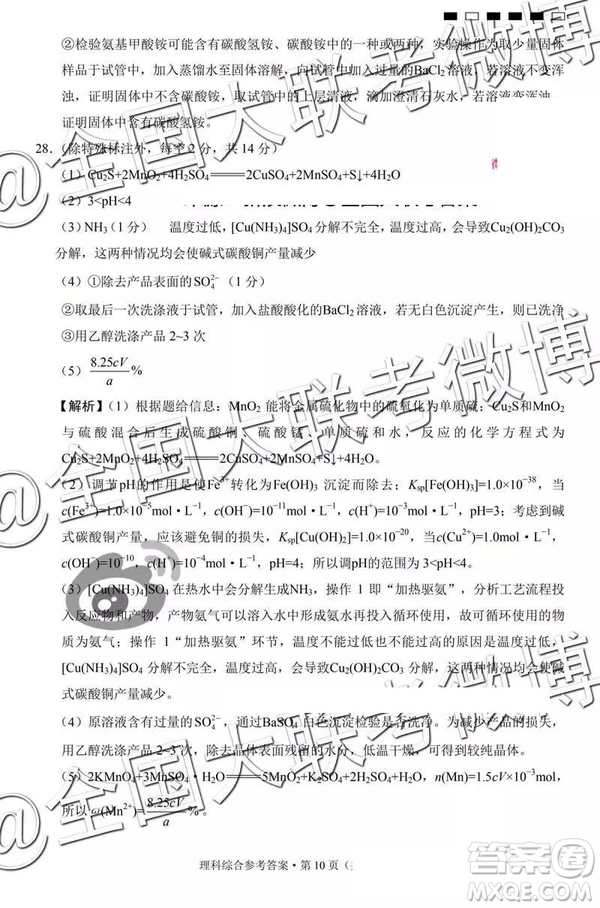 ②检验氨基甲酸铵可能含有碳酸氢铵、碳酸铵中的一种或两种，正确的操作为取少量固体
样品于试管中，加入蒸馏水至固体溶解，向试管中加入过量的BaCl₂溶液，若溶液不变浑
浊，证明固体中不含碳酸铵，取试管中的上层清液，滴加澄清石灰水，若溶液变浑浊，
证明固体中含有碳酸氢铵。
28.（除特殊标注外，每空2分，共14分）
（1）Cu₂S+2MnO₂+4H₂SO₄══2CuSO₄+2MnSO₄+S↓+4H₂O
（2）3<pH<4
（3）NH₃（1分） 温度过低，[Cu(NH₃)₄]SO₄分解不完全，温度过高，会导致Cu₂(OH)₂CO₃
分解，这两种情况均会使碱式碳酸铜产量减少
（4）①除去产品表面的SO₄²⁻（1分）
②取最后一次洗涤液于试管，加入盐酸酸化的BaCl₂溶液，若无白色沉淀产生，则已洗净
③用乙醇洗涤产品2~3次
（5）8.25cV/a%
【解析】（1）根据题给信息：MnO₂能将金属硫化物中的硫氧化为单质硫；Cu₂S和MnO₂
与硫酸混合后生成硫酸铜、硫酸锰、单质硫和水，反应的化学方程式为
Cu₂S+2MnO₂+4H₂SO₄══2CuSO₄+2MnSO₄+S↓+4H₂O。
（2）调节pH的作用是使Fe³⁺转化为Fe(OH)₃沉淀而除去；Ksp[Fe(OH)₃]=1.0×10⁻³⁸，当
c(Fe³⁺)=1.0×10⁻⁵mol·L⁻¹，c(OH⁻)=10⁻¹¹mol·L⁻¹，c(H⁺)=10⁻³mol·L⁻¹，pH=3；考虑到碱
式碳酸铜产量，应该避免铜的损失，Ksp[Cu(OH)₂]=1.0×10⁻²⁰，当c(Cu²⁺)=1.0mol·L⁻¹，
c(OH⁻)=10⁻¹⁰，c(H⁺)=10⁻⁴mol·L⁻¹，pH=4；所以pH的范围为3<pH<4。
（3）[Cu(NH₃)₄]SO₄在热水中会分解生成NH₃，操作1即“加热驱氨”，分析工艺流程投
入反应物和产物，产物氨气溶入水中形成氨水再投入循环使用，故可供循环使用的物
质为氨气；操作1“加热驱氨”环节，温度不能过低也不能过高的原因是温度过低，
[Cu(NH₃)₄]SO₄分解不完全，温度过高，会导致Cu₂(OH)₂CO₃分解，这两种情况均会使碱
式碳酸铜产量减少。
（4）原溶液含有过量的SO₄²⁻，通过BaSO₄白色沉淀检验是否洗净。为减少产品的损失，
用乙醇洗涤产品2~3次，除去晶体表面残留的水分，低温干燥，可得到较纯晶体。
（5）2KMnO₄+3MnSO₄+H₂O══5MnO₂+K₂SO₄+2H₂SO₄+H₂O，n(Mn)=1.5cV×10⁻³mol，
所以ω(Mn²⁺)=8.25cV/a%。
理科综合参考答案·第10页（
@全国大联考微博
@全国大联考微博
@全国大联考微博
答案圈